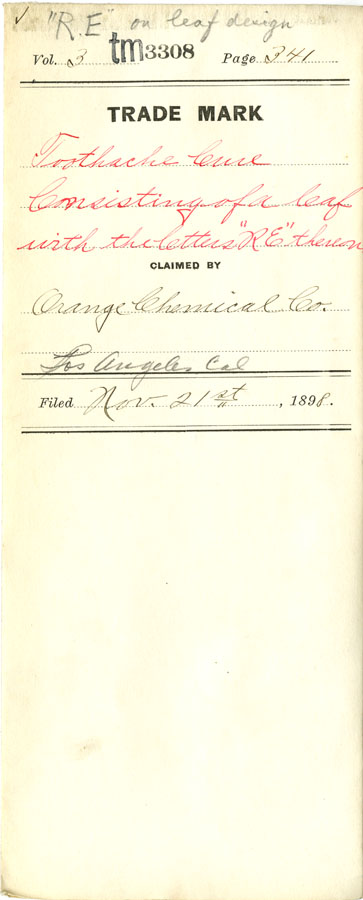 ✓ "R.E" on leaf design
Vol. 3 tm3308 Page 341
TRADE MARK
Toothache Cure
Consisting of a leaf
with the letters "RE" thereon
CLAIMED BY
Orange Chemical Co.
Los Angeles Cal
Filed Nov. 21st, 1898.